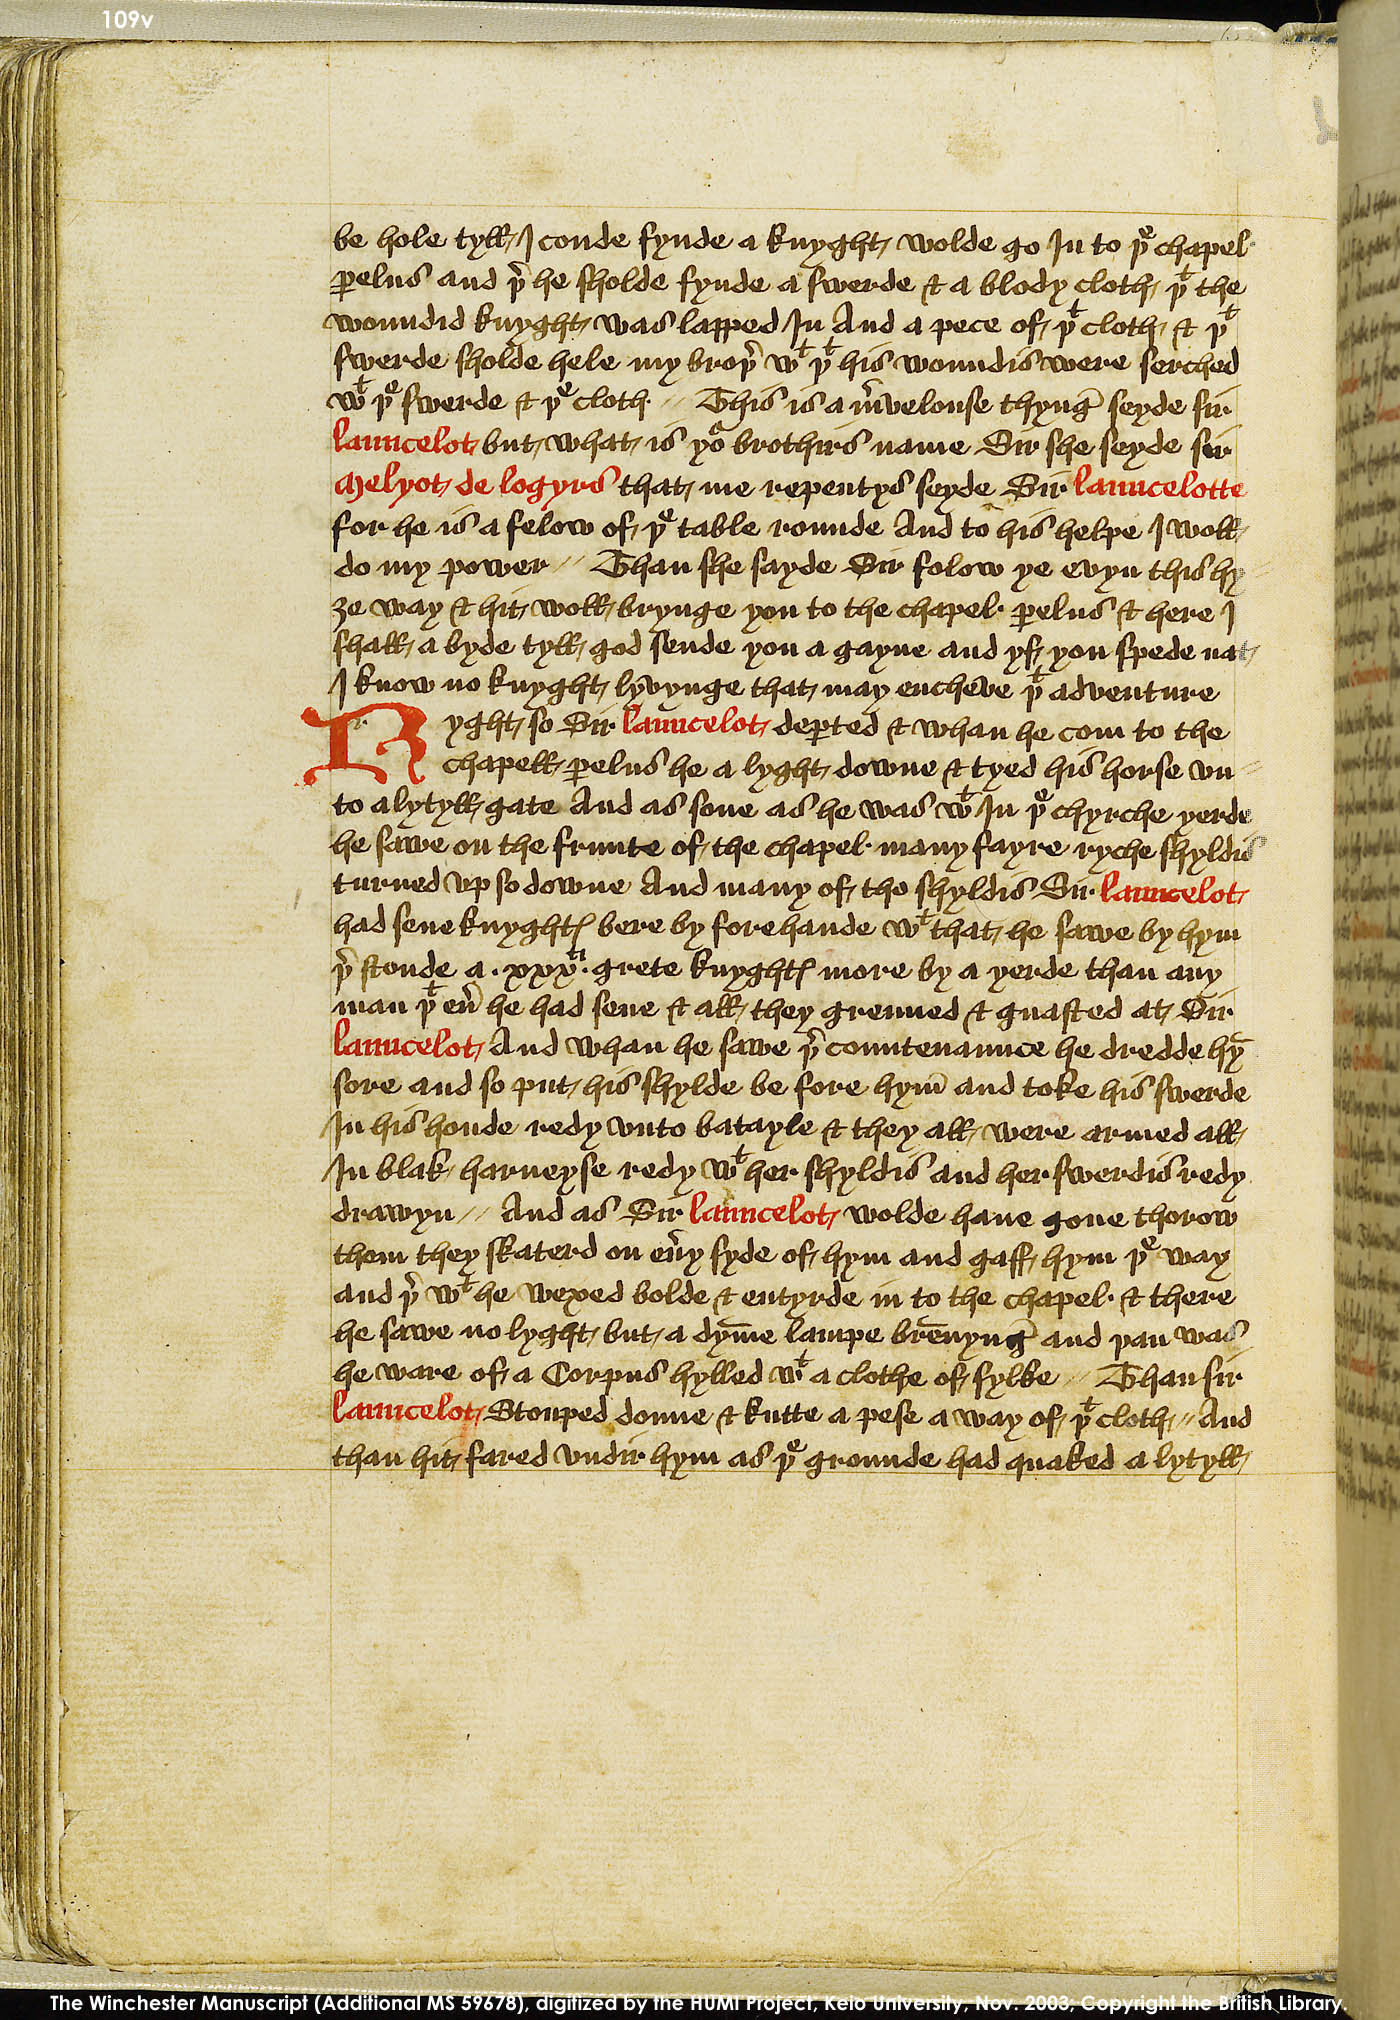 109v
be hole tyll I coude fynde a knyght wolde go In to þͤ chapel
ꝑelus and þ̉ he sholde fynde a swerde & a blody cloth þᵗ the
woundid knyght was lapped In And a pece of þᵗ cloth & þᵗ
swerde sholde hele my broþ̉ wᵗ þᵗ his woundis were serched
wᵗ þͤ swerde & þͤ cloth // This is a m̉velouse thynḡ seyde sir
launcelot but what is yoͬ brothirs name Sir she seyde sir
Melyot de logyrs that me repentys seyde Sir launcelotte
for he is a felow of þͤ table rounde And to his helpe I woll
do my power // Than she sayde Sir folow ye evyn this hy //
ȝe way & hit woll brynge you to the chapel ꝑelus & here I
shall a byde tyll god sende you a gayne and yf you spede nat
I know no knyght lyvynge that may encheve þᵗ adventure
Ryght so Sir launcelot deꝑted & whan he com to the
chapell ꝑelus he a lyght downe & tyed his horse vn //
to a lytyll gate And as sone as he was wᵗ In þͤ chyrche yerde
he sawe on the frunte of the chapel many fayre ryche shyldis
turned vp so downe And many of tho shyldis Sir launcelot
had sene knyghtꝭ bere by forehande wᵗ that he sawe by hym
þ̉ stonde a .xxxᵗⁱ. grete knyghtꝭ more by a yerde than any
man þᵗ eủ he had sene & all they grenned & gnasted at Sir
launcelot And whan he sawe þ̉ countenaunce he dredde hȳ
sore and so put his shylde be fore hym̄ and toke his swerde
In his honde redy vnto batayle & they all were armed all
In blak harneyse redy wᵗ her shyldis and her swerdis redy
drawyn // And as Sir launcelot wolde haue gone thorow
them they skaterd on eủy syde of hym and gaff hym þͤ way
and þ̉ wᵗ he wexed bolde & entyrde in to the chapel & there
he sawe no lyght but a dym̄e lampe bren̄ynḡ and þan was
he ware of a Corpus hylled wᵗ a clothe of sylke // Than sir
launcelot Stouped doune & kutte a pese a way of þᵗ cloth // And
than hit fared vndir hym as þͤ grounde had quaked a lytyll
The Winchester Manuscript (Additional MS 59678), digitized by the HUMI Project, Keio University, Nov. 2003; Copyright the British Library.